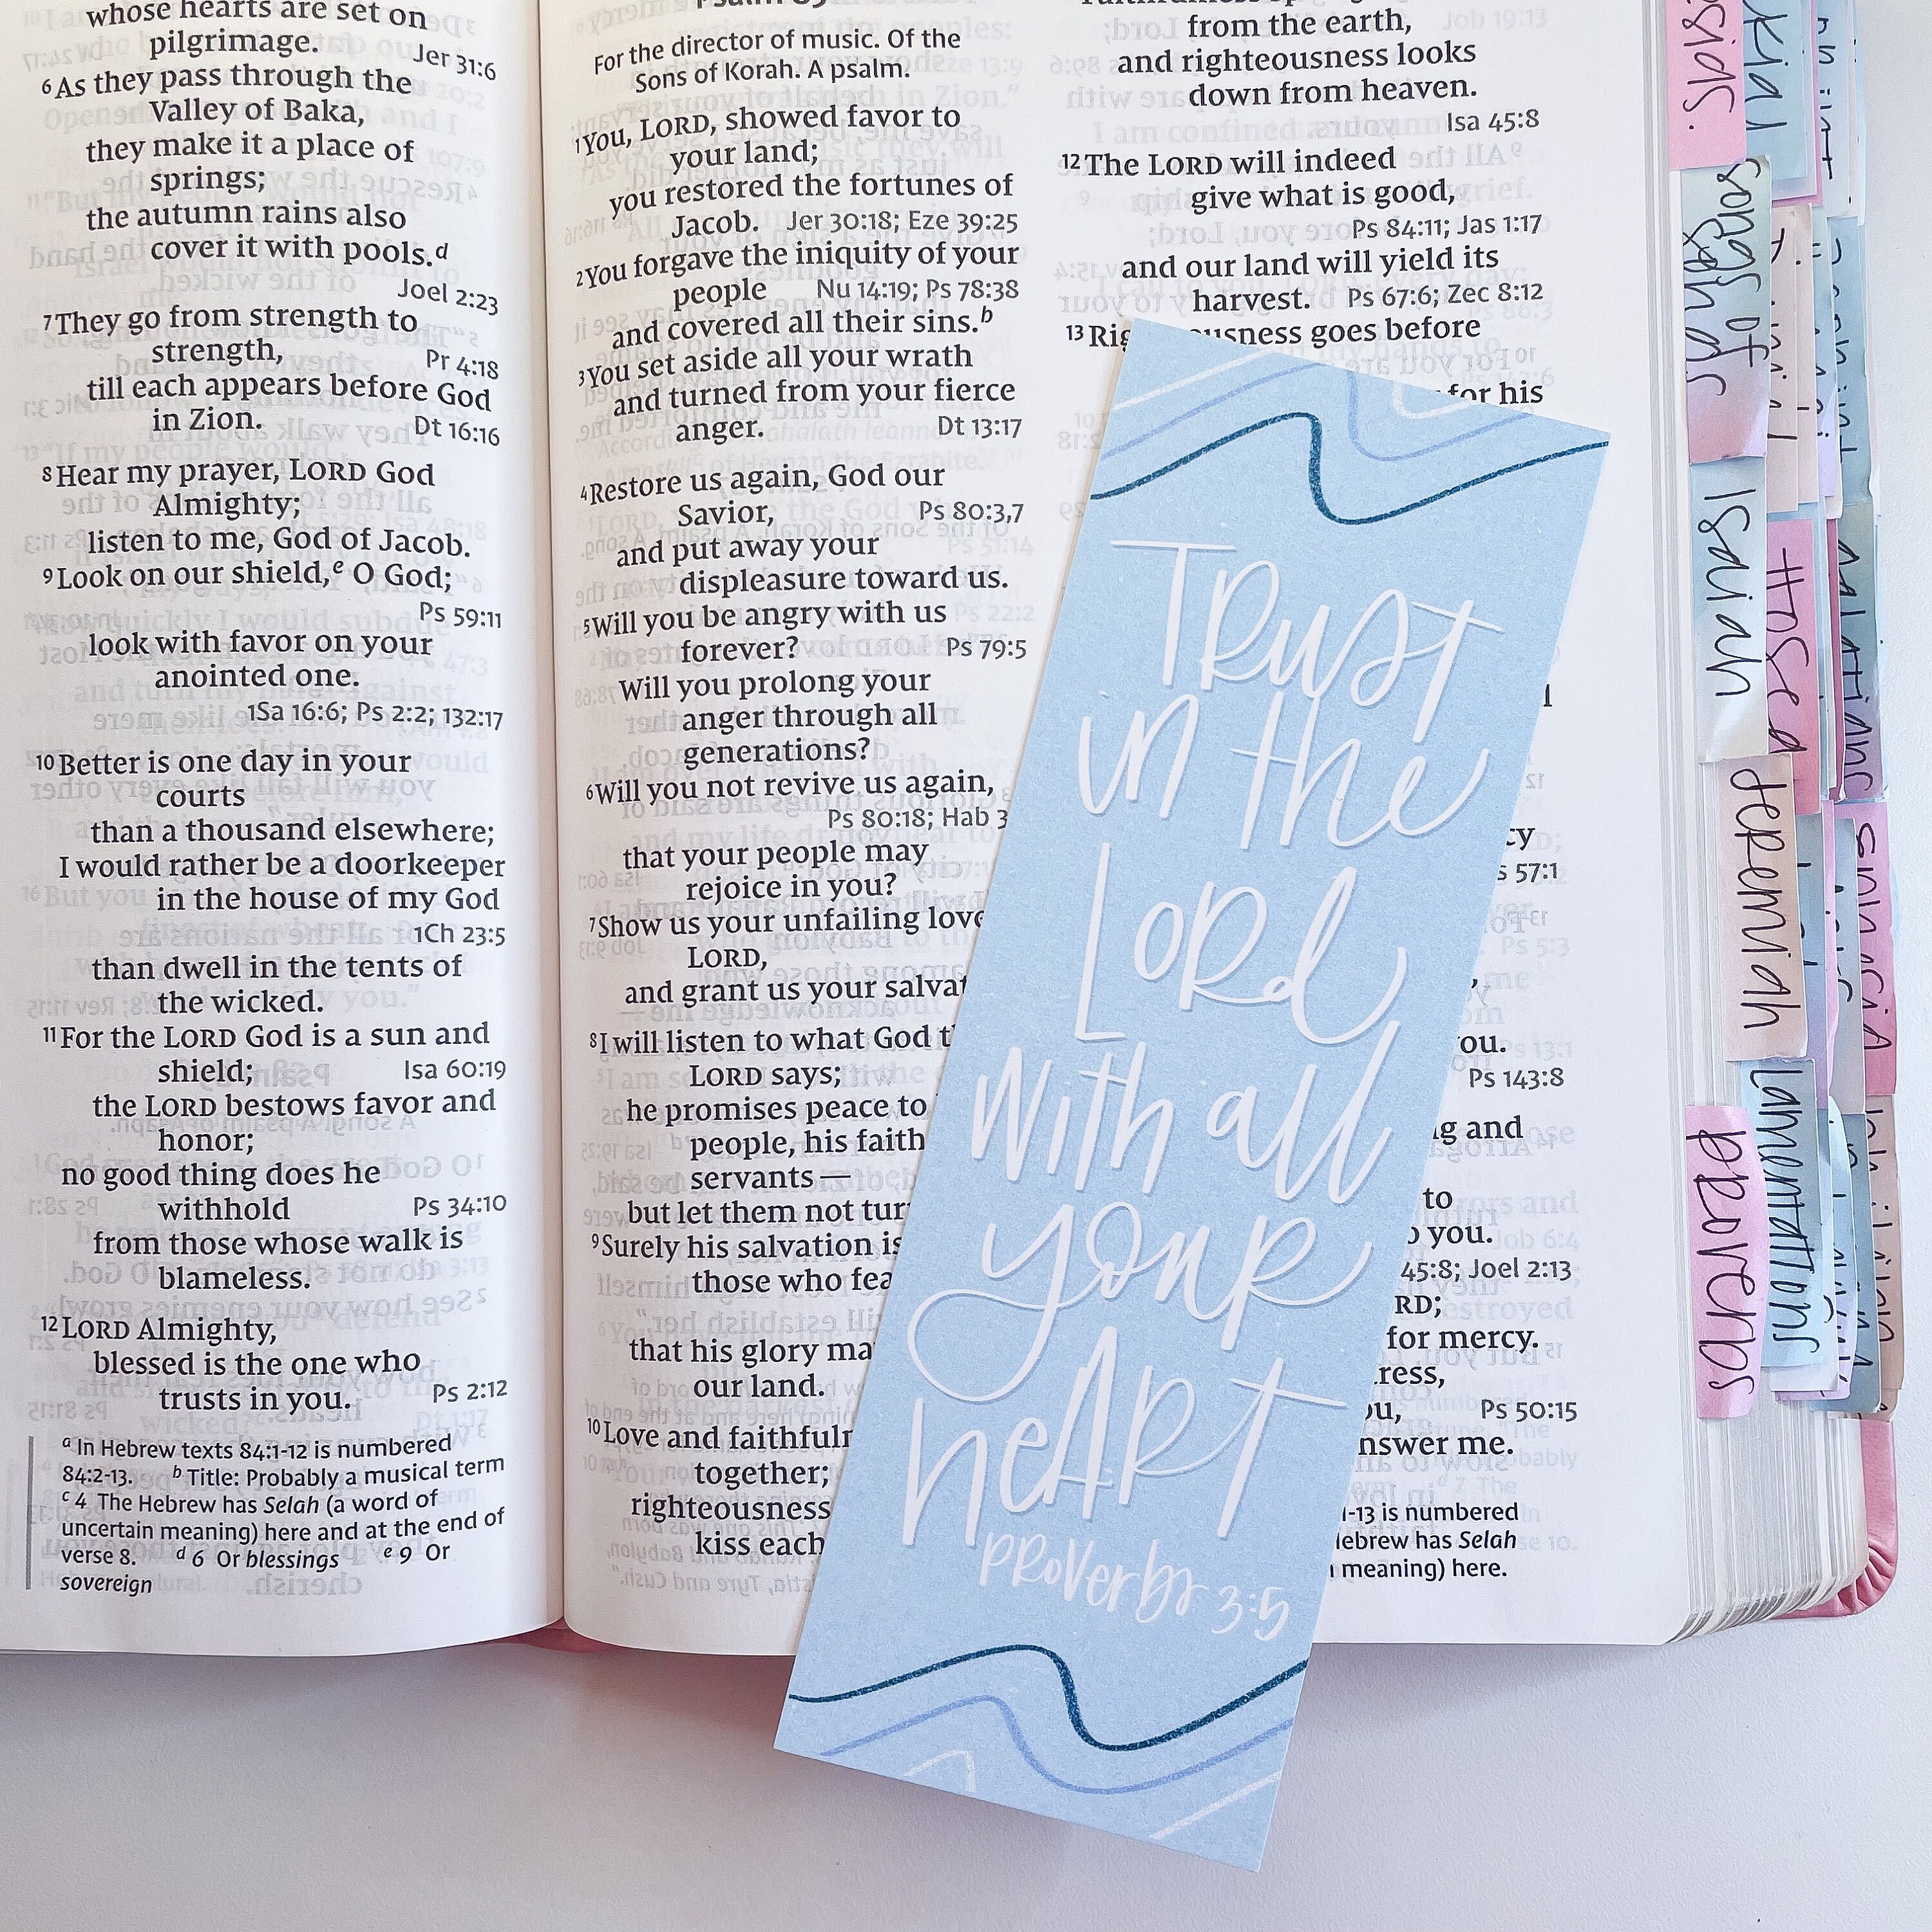 whose hearts are set on
pilgrimage. Jer 31:6
6As they pass through the
Valley of Baka,
they make it a place of
springs;
the autumn rains also
cover it with pools.d
Joel 2:23
7They go from strength to
strength, Pr 4:18
till each appears before God
in Zion. Dt 16:16
8Hear my prayer, LORD God
Almighty;
listen to me, God of Jacob.
9Look on our shield,e O God;
Ps 59:11
look with favor on your
anointed one.
1Sa 16:6; Ps 2:2; 132:17
10Better is one day in your
courts
than a thousand elsewhere;
I would rather be a doorkeeper
in the house of my God
1Ch 23:5
than dwell in the tents of
the wicked.
11For the LORD God is a sun and
shield; Isa 60:19
the LORD bestows favor and
honor;
no good thing does he
withhold Ps 34:10
from those whose walk is
blameless.
12LORD Almighty,
blessed is the one who
trusts in you. Ps 2:12
a In Hebrew texts 84:1-12 is numbered
84:2-13. b Title: Probably a musical term
c 4 The Hebrew has Selah (a word of
uncertain meaning) here and at the end of
verse 8. d 6 Or blessings e 9 Or
sovereign
For the director of music. Of the
Sons of Korah. A psalm.
1You, LORD, showed favor to
your land;
you restored the fortunes of
Jacob. Jer 30:18; Eze 39:25
2You forgave the iniquity of your
people Nu 14:19; Ps 78:38
and covered all their sins.b
3You set aside all your wrath
and turned from your fierce
anger. Dt 13:17
4Restore us again, God our
Savior, Ps 80:3,7
and put away your
displeasure toward us.
5Will you be angry with us
forever? Ps 79:5
Will you prolong your
anger through all
generations?
6Will you not revive us again,
Ps 80:18; Hab 3
that your people may
rejoice in you?
7Show us your unfailing love
LORD,
and grant us your salva
8I will listen to what God t
LORD says;
he promises peace to
people, his faith
servants —
but let them not tur
9Surely his salvation is
those who fea
that his glory ma
our land.
10Love and faithfuln
together;
righteousness
kiss each
from the earth,
and righteousness looks
down from heaven.
Isa 45:8
12The LORD will indeed
give what is good,
Ps 84:11; Jas 1:17
and our land will yield its
harvest. Ps 67:6; Zec 8:12
13Rig ousness goes before
for his
cy
57:1
you.
Ps 143:8
g and
to
you.
45:8; Joel 2:13
RD;
for mercy.
ress,
ou, Ps 50:15
nswer me.
1-13 is numbered
ebrew has Selah
meaning) here.
Trust
in the
Lord
with all
your
heart
Proverbs 3:5
Songs of
Songs
Isaiah
Jeremiah
Lamentations
proverbs
Hosea
galatians